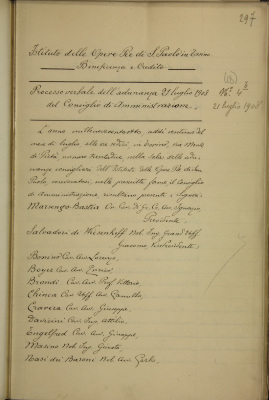 297
Istituto delle Opere Pie di S. Paolo in Torino
Beneficenza e Credito
Processo verbale dell'adunanza 21 luglio 1908
del Consiglio di Amministrazione.
21 luglio 1908
L'anno millenovecentootto, addì ventuno del
mese di luglio, alle ore sedici, in Torino, via Monte
di Pietà, numero trentadue, nella sala delle adu-
nanze consigliari dell'Istituto delle Opere Pie di San
Paolo, convocatosi nelle prescritte forme il Consiglio
di Amministrazione risultano presenti i Signori:
Marsengo Bastia Cav. Ignazio,
Presidente
Salvadori di Wiesenhoff Nob. Ing. Grand'Uff.
Giacomo Vicepresidente,
Bonino Cav. Avv. Lorenzo,
Boyer Cav. Avv. Enrico,
Biondi Cav. Avv. Prof. Vittorio,
Chinca Cav. Uff. Avv. Camillo,
Cravera Cav. Avv. Giuseppe,
Cav. Ing. Attilio,
Engelfred Cav. Avv. Giuseppe,
Masino Nob. Ing.
Nasi dei Baroni Nob. Avv. Carlo,